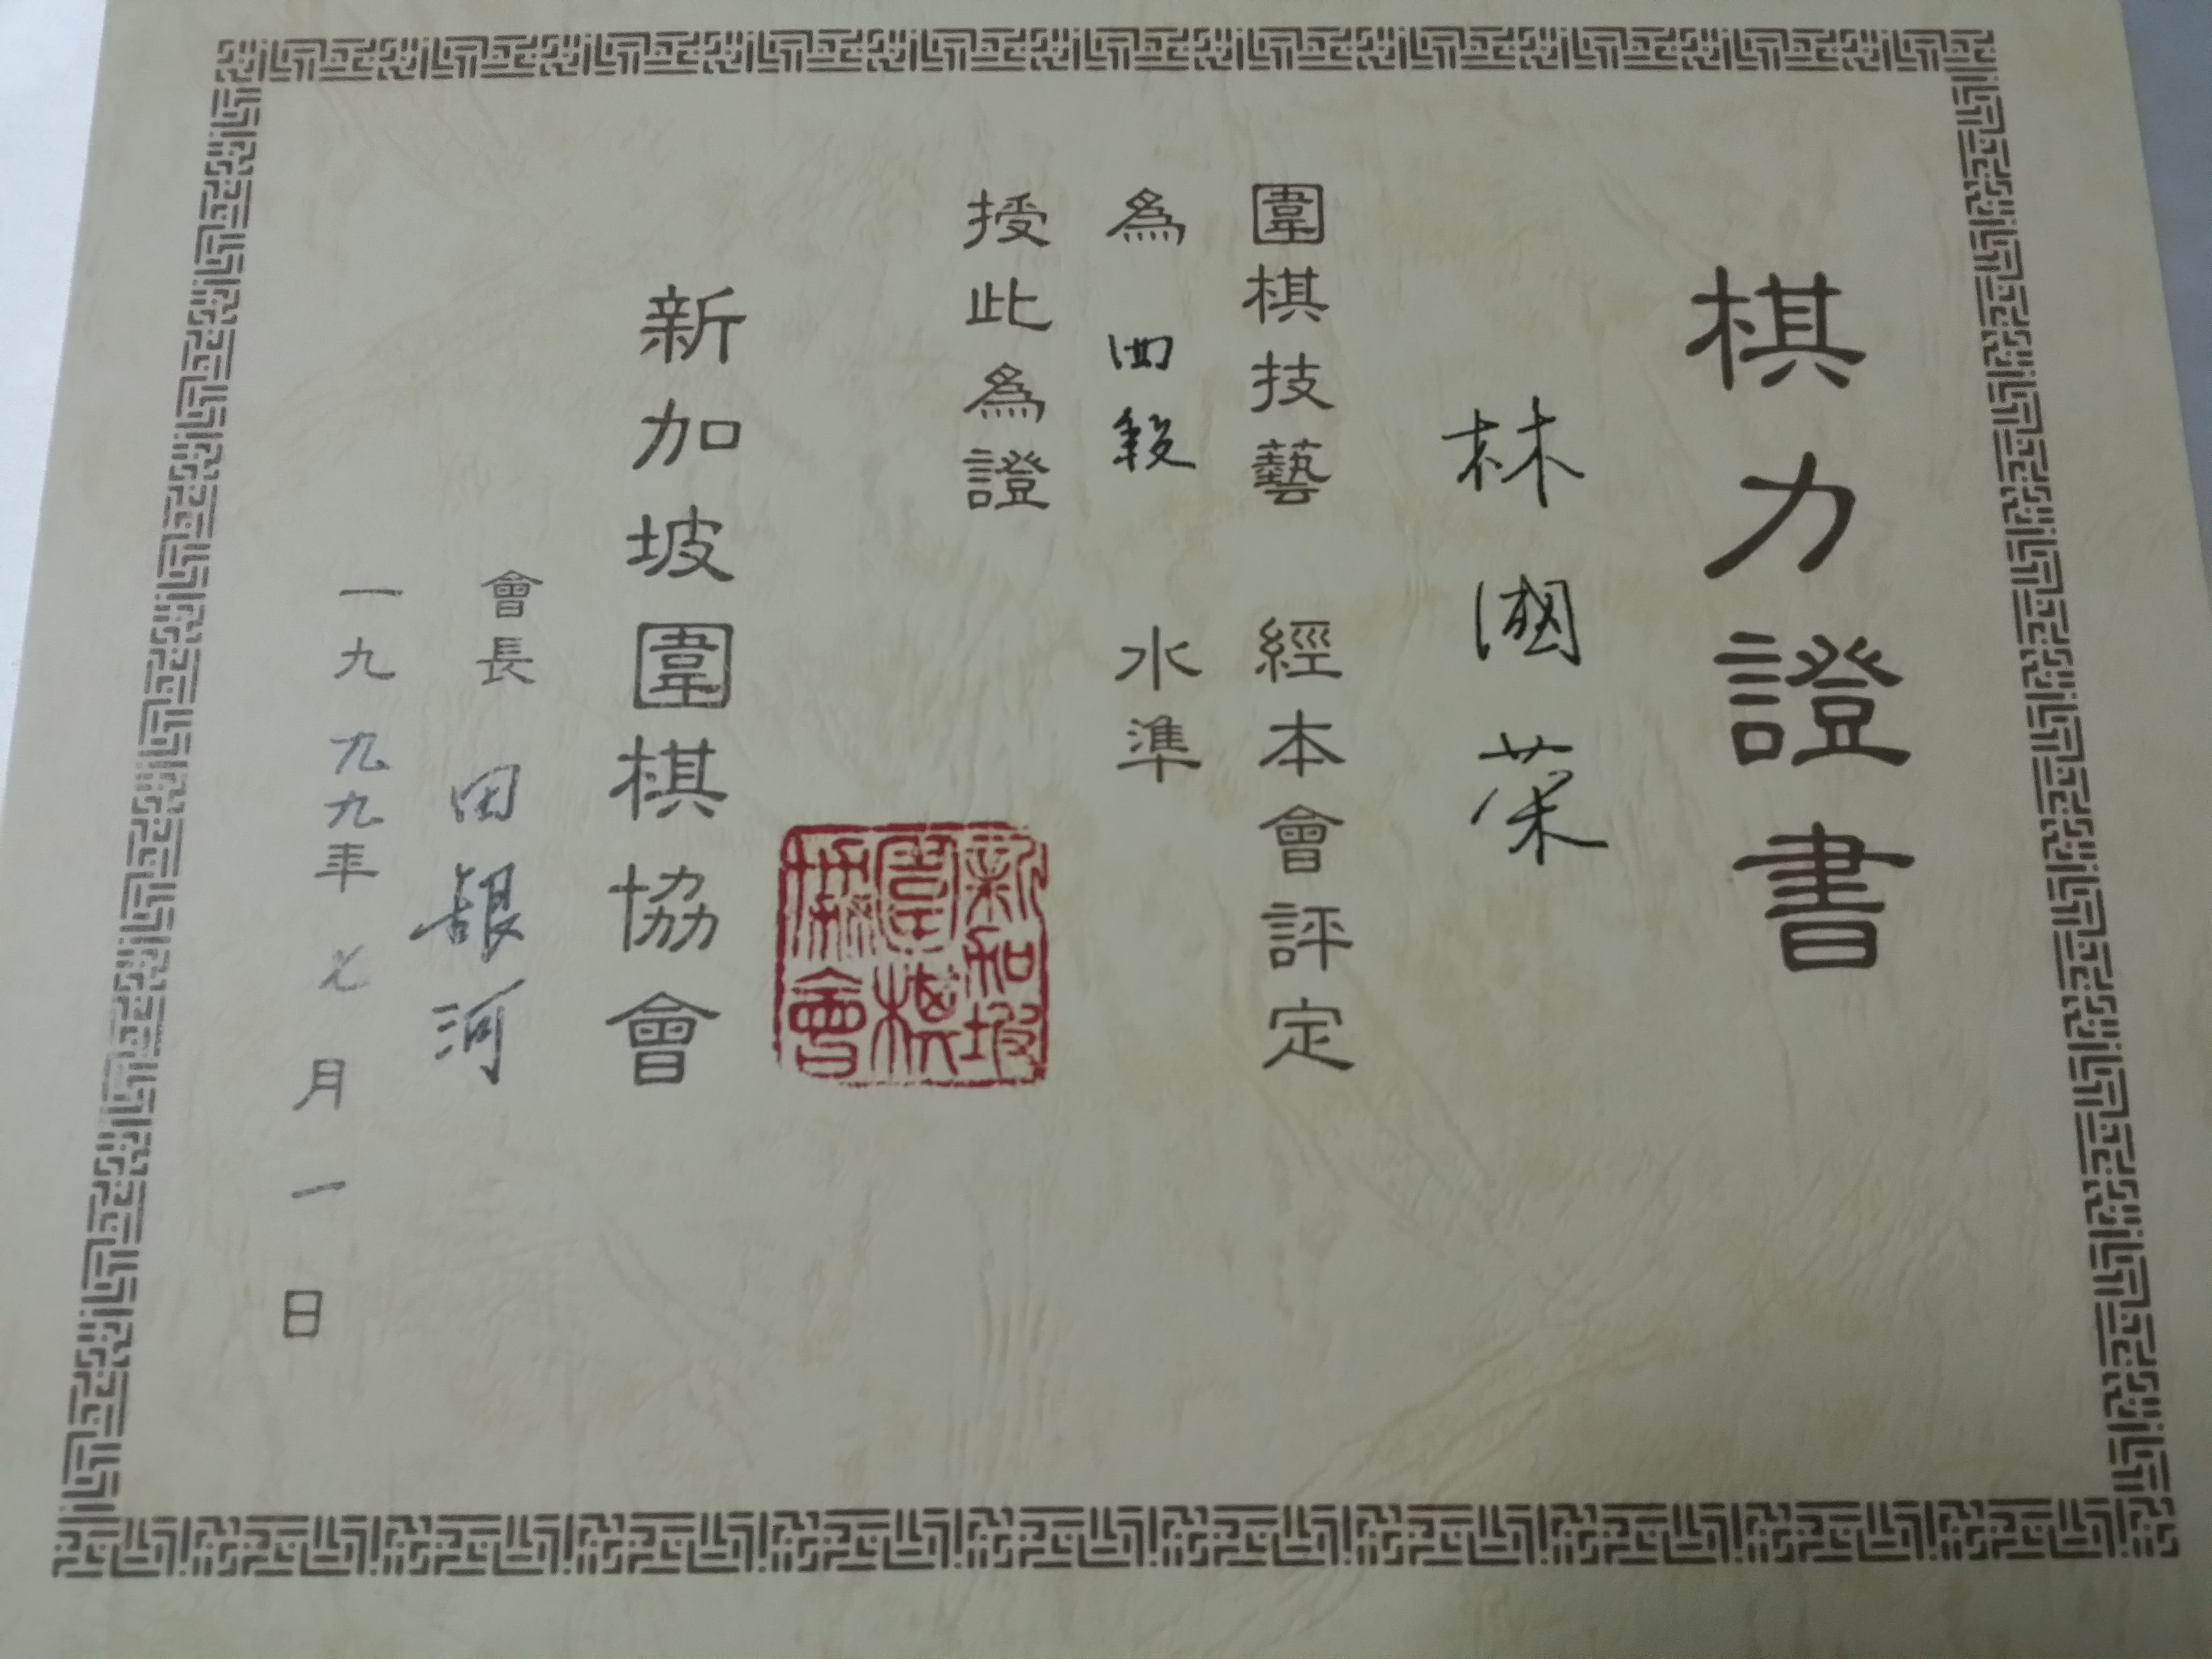 棋力證書
林國荣
圍棋技藝 經本會評定
為 四段 水準
授此為證
新加坡圍棋協會
會長 田銀河
一九九九年七月一日
新加坡
圍棋
協會